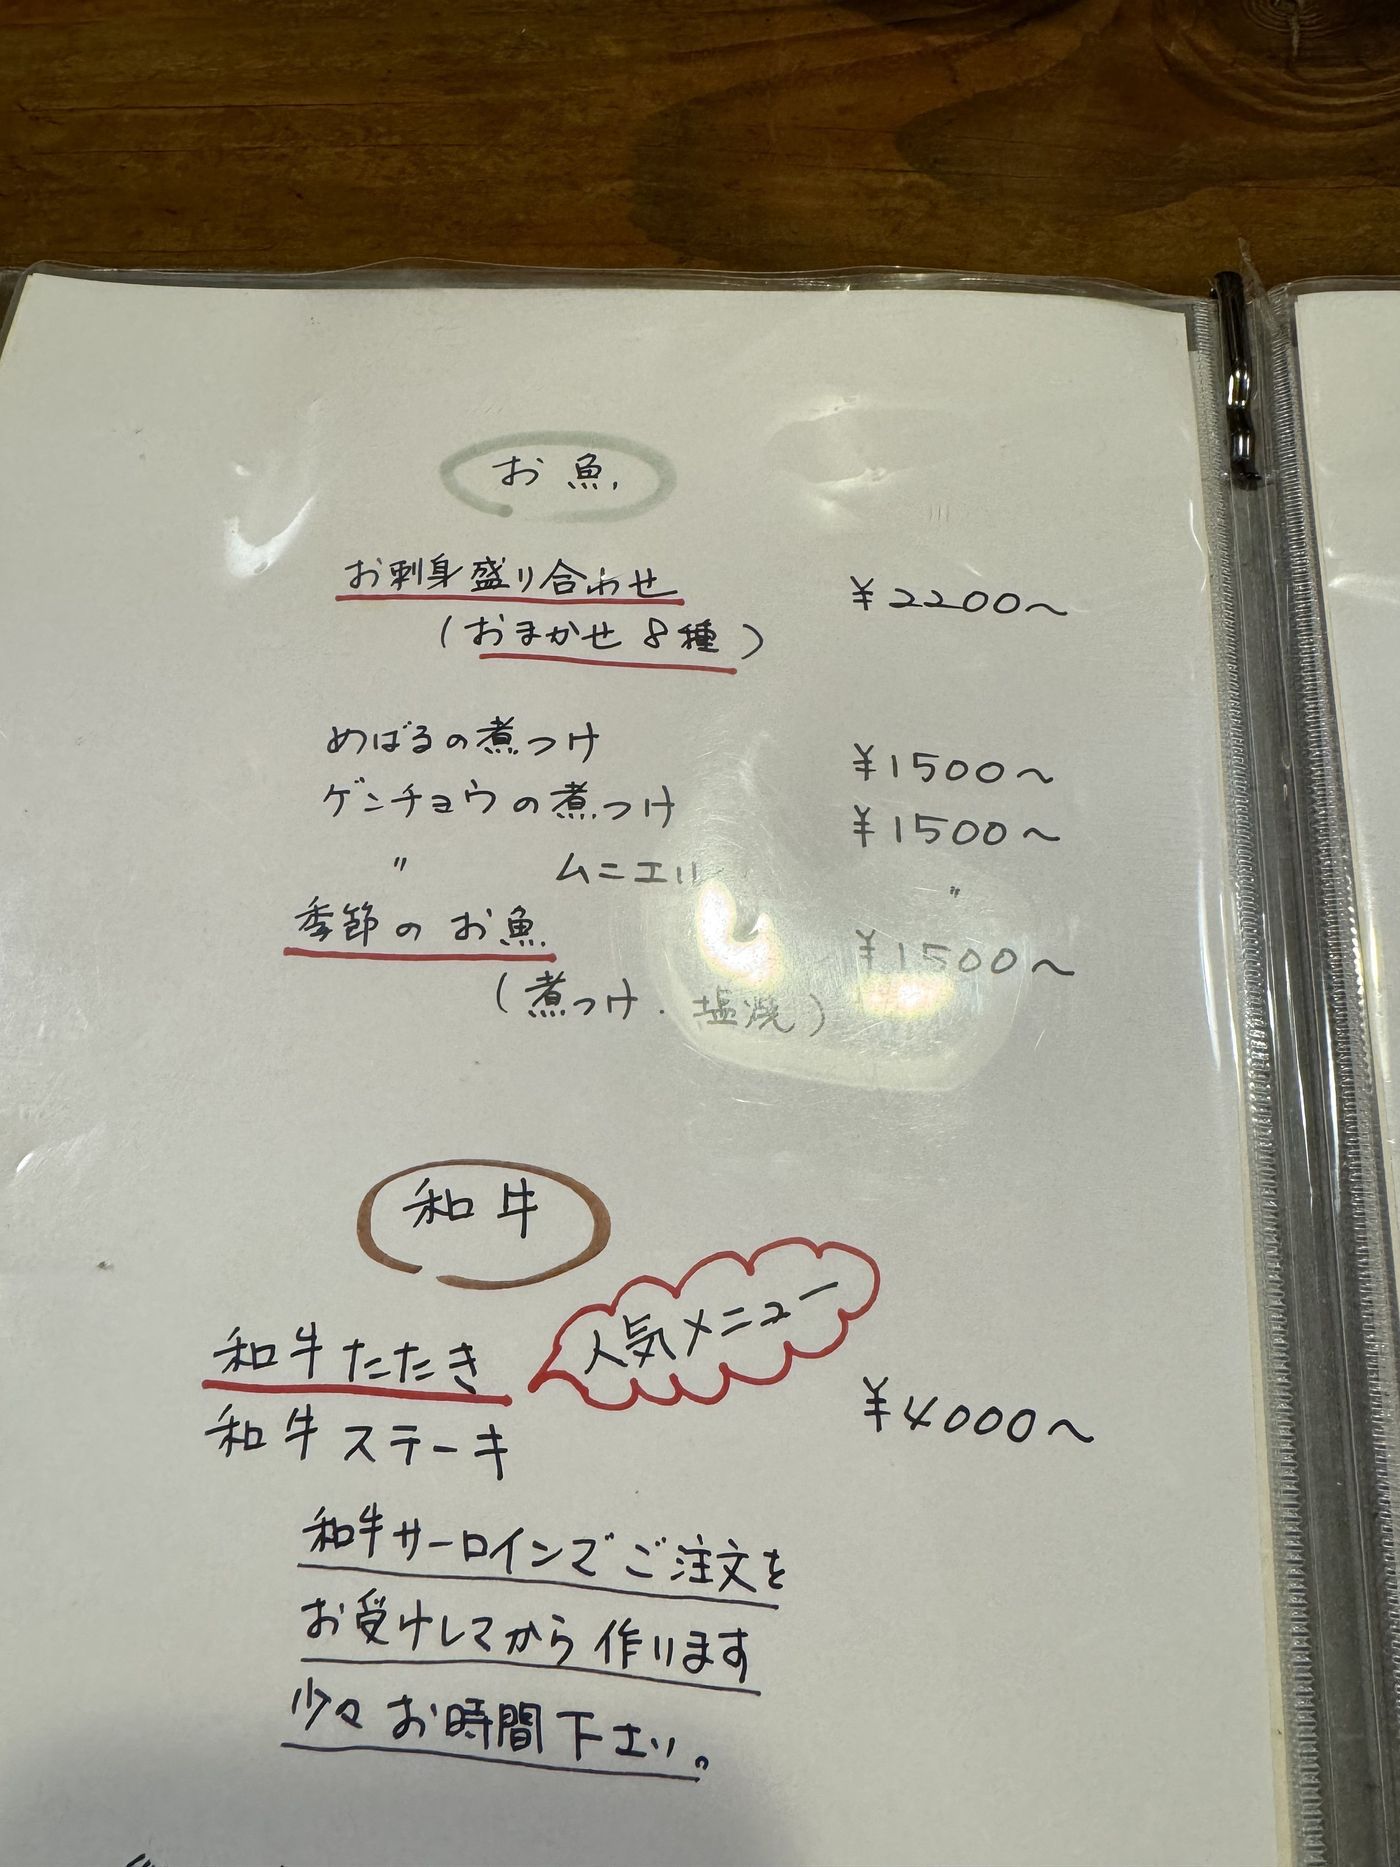 お魚
お刺身盛り合わせ ¥2200〜
(おまかせ8種)
めばるの煮つけ ¥1500〜
ゲンチョウの煮つけ ¥1500〜
〃 ムニエル 〃
季節のお魚 ¥1500〜
(煮つけ・塩焼)
和牛
人気メニュー
和牛たたき ¥4000〜
和牛ステーキ
和牛サーロインでご注文を
お受けしてから作ります
少々お時間下さい。